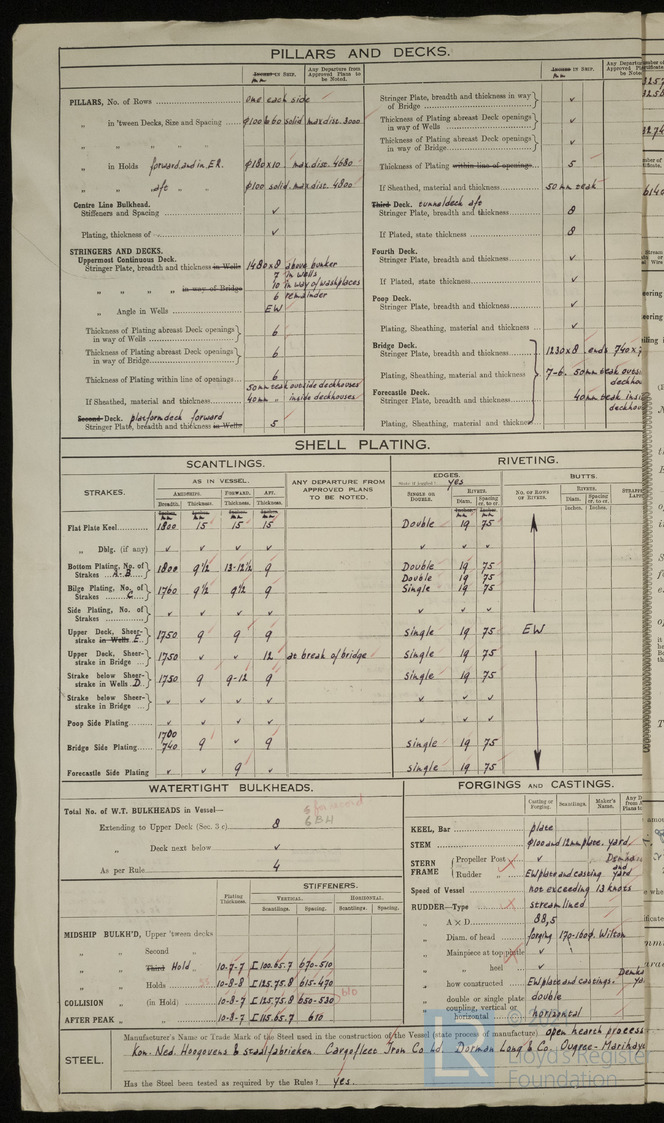 PILLARS AND DECKS.
Inches in Ship. mm
Any Departure from Approved Plans to be Noted.
PILLARS, No. of Rows one each side
„ in 'tween Decks, Size and Spacing φ100 & 60 solid max dist. 3000
„ „ „ „
„ in Holds forward and in E.R. φ180x10 max dist. 4680
„ „ aft „ „ φ100 solid. max dist. 4800
Centre Line Bulkhead.
Stiffeners and Spacing ✓
Plating, thickness of ✓
STRINGERS AND DECKS.
Uppermost Continuous Deck.
Stringer Plate, breadth and thickness in Wells 1480x8 above bunker
7 in wells
„ „ „ „ in way of Bridge 10 in way of washplaces
6 remainder
„ Angle in Wells EW
Thickness of Plating abreast Deck openings in way of Wells 6
Thickness of Plating abreast Deck openings in way of Bridge 6
Thickness of Plating within line of openings 6
50 mm teak outside deckhouses
If Sheathed, material and thickness 40 mm „ inside deckhouses
Second Deck. platform deck forward
Stringer Plate, breadth and thickness in Wells 5
Inches in Ship. mm
Stringer Plate, breadth and thickness in way of Bridge ✓
Thickness of Plating abreast Deck openings in way of Wells ✓
Thickness of Plating abreast Deck openings in way of Bridge ✓
Thickness of Plating within line of openings 5
If Sheathed, material and thickness 50 mm teak
Third Deck. tunneldeck aft
Stringer Plate, breadth and thickness 8
If Plated, state thickness 8
Fourth Deck.
Stringer Plate, breadth and thickness ✓
If Plated, state thickness ✓
Poop Deck.
Stringer Plate, breadth and thickness ✓
Plating, Sheathing, material and thickness ✓
Bridge Deck.
Stringer Plate, breadth and thickness 1230x8. ends 740x7
Plating, Sheathing, material and thickness 7-6. 50 mm teak outs
deckhou
Forecastle Deck.
Stringer Plate, breadth and thickness 40 mm teak insi
deckhou
Plating, Sheathing, material and thickness
SHELL PLATING.
SCANTLINGS.
RIVETING.
STRAKES.
AS IN VESSEL.
ANY DEPARTURE FROM APPROVED PLANS TO BE NOTED.
EDGES. yes
BUTTS.
Amidships. Forward. Aft.
Breadth. Thickness. Thickness. Thickness.
Single or Double. Rivets. Diam. Spacing cr. to cr.
No. of Rows of Rivets. Rivets. Diam. Spacing cr. to cr.
Inches. Inches.
Flat Plate Keel 1800 15 15 15 Double 19 75
„ Dblg. (if any) ✓ ✓ ✓ ✓ ✓ ✓ ✓
Bottom Plating, No. of Strakes A-B 1800 9½ 13-12½ 9 Double 19 75
Double 19 75
Bilge Plating, No. of Strakes C 1760 9½ 9½ 9 Single 19 75
Side Plating, No. of Strakes ✓ ✓ ✓ ✓ ✓ ✓ ✓
Upper Deck, Sheerstrake in Wells E 1750 9 9 9 Single 19 75 EW
Upper Deck, Sheerstrake in Bridge 1750 ✓ ✓ 12 at break of bridge Single 19 75
Strake below Sheerstrake in Wells D 1750 9 9-12 9 Single 19 75
Strake below Sheerstrake in Bridge ✓ ✓ ✓ ✓ ✓ ✓ ✓
Poop Side Plating ✓ ✓ ✓ ✓ ✓ ✓ ✓
1700
Bridge Side Plating 740 9 ✓ 9 Single 19 75
Forecastle Side Plating ✓ ✓ 9 ✓ Single 19 75
WATERTIGHT BULKHEADS.
Total No. of W.T. BULKHEADS in Vessel—
Extending to Upper Deck (Sec. 3 c) 8
6 BH
„ Deck next below ✓
As per Rule 4
Plating Thickness.
STIFFENERS.
Vertical. Horizontal.
Scantlings. Spacing. Scantlings. Spacing.
MIDSHIP BULKH'D, Upper 'tween decks
„ „ Second „
„ „ Third Hold „ 10-7-7 I 100.65.7 670-510
„ „ Holds 10-8-8 I 125.75.8 615-470
COLLISION „ (in Hold) 10-8-7 I 125.75.8 650-530 610
AFTER PEAK „ „ 10-8-7 I 115.65.7 610
FORGINGS AND CASTINGS.
Casting or Forging. Scantlings. Maker's Name.
KEEL, Bar place
STEM φ100 and 12mm plate. yard
STERN FRAME
Propeller Post ✓
Rudder „ EW plate and casting. yard
Speed of Vessel not exceeding 13 knots
RUDDER—Type streamlined
„ A x D 38,5
„ Diam. of head forging 170-160φ. Wilton
„ Mainpiece at top pintle ✓
„ „ heel ✓
„ how constructed EW plate and castings.
„ double or single plate double
„ coupling, vertical or horizontal horizontal
STEEL.
Manufacturer's Name or Trade Mark of the Steel used in the construction of the Vessel (state process of manufacture) open hearth process
Kon. Ned. Hoogovens & staalfabrieken. Cargofleet Iron Co Ld. Dorman Long & Co. Ougree-Marihaye
Has the Steel been tested as required by the Rules? Yes.
© Lloyd's Register
Foundation